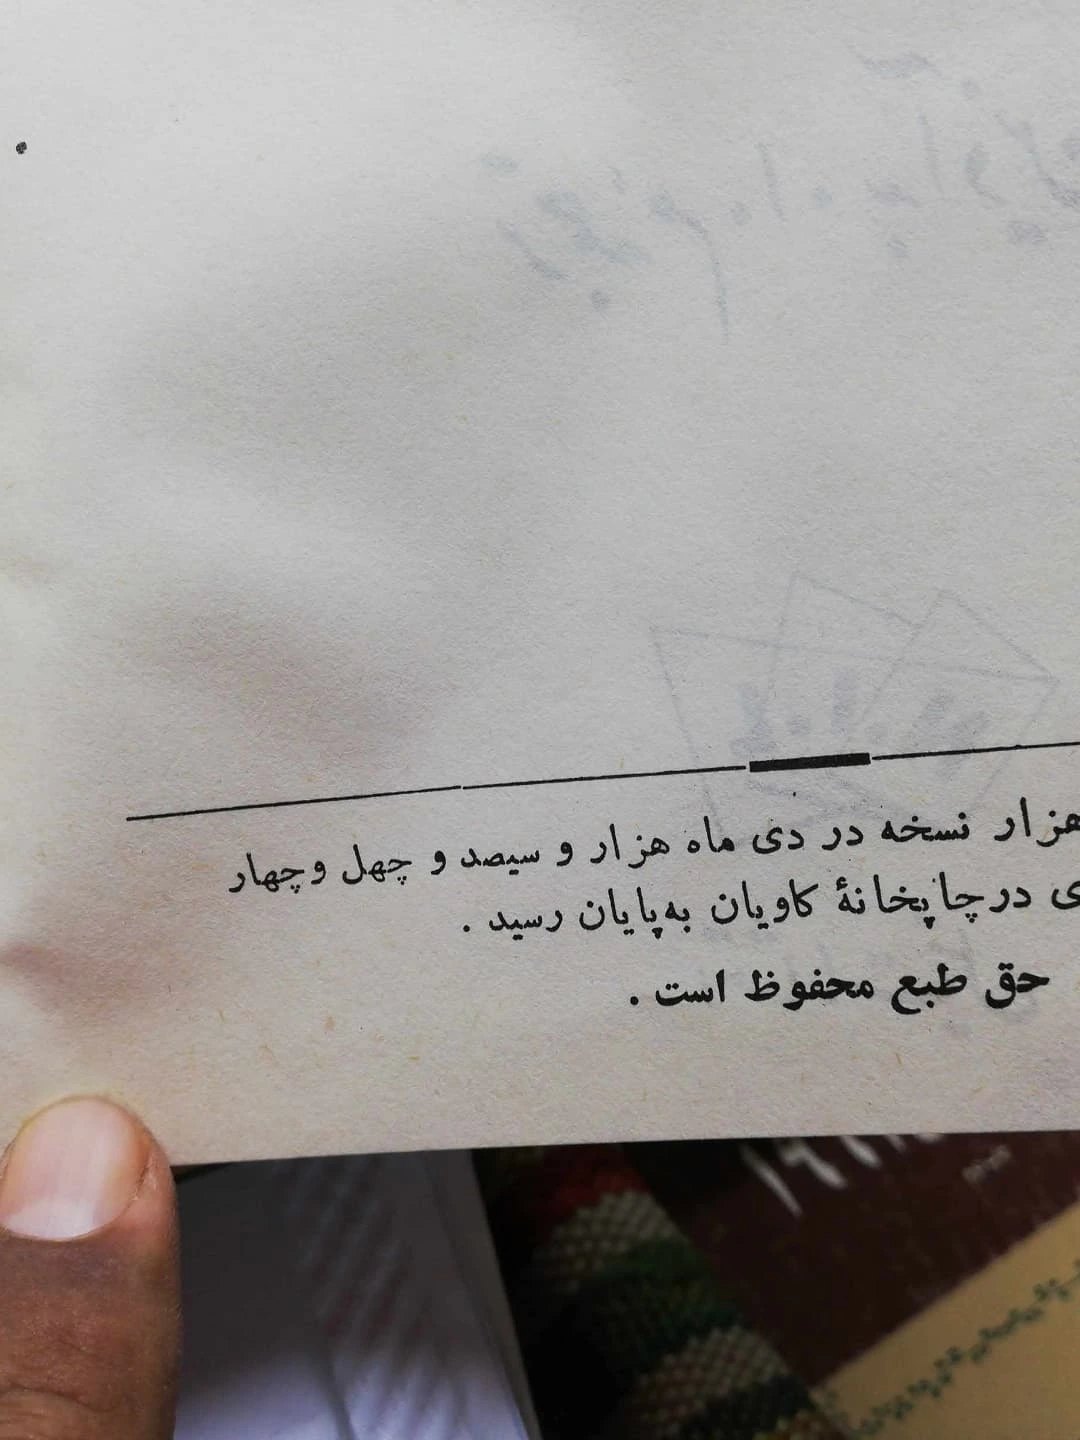 هزار نسخه در دی ماه هزار و سیصد و چهل وچهار
ی در چاپخانهٔ کاویان به‌پایان رسید .
حق طبع محفوظ است .